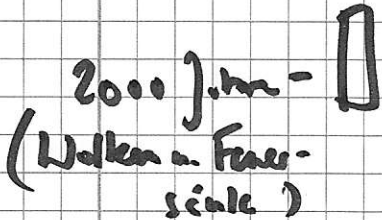 2000 Jahre -
(Wolken u. Feuer-
säule)